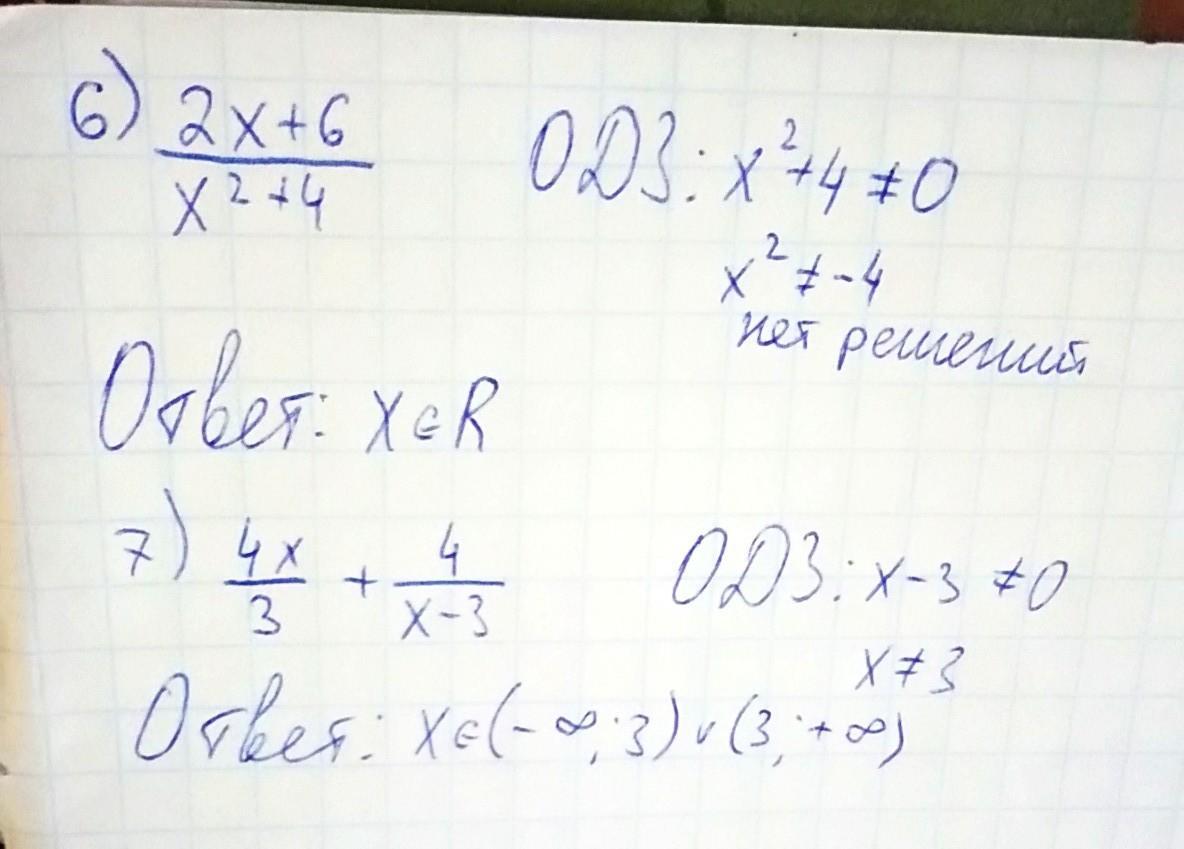 6) (2x+6)/(x²+4) ОДЗ: x²+4 ≠ 0
x² ≠ -4
нет решений
Ответ: x∈R
7) 4x/3 + 4/(x-3) ОДЗ: x-3 ≠ 0
x ≠ 3
Ответ: x∈(-∞; 3)∪(3; +∞)